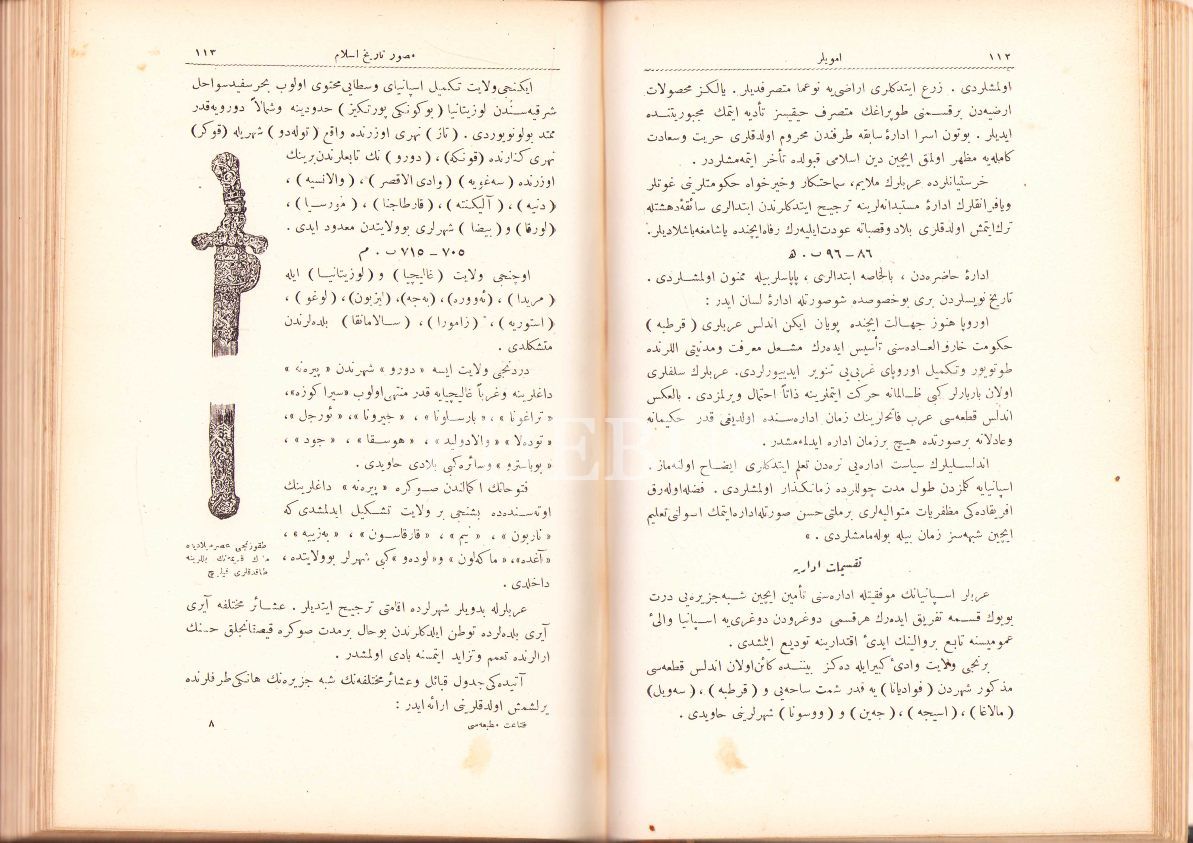 ١١٢
امويلر
اولمشلردی . زرع ايتدكلری اراضی‌يه نوعما متصرفديلر . يالكز محصولات
ارضيه‌دن برقسمنی طوپراغك متصرف حقيقيسنه تأديه ايتمك مجبوريتنده
ايديلر . بوتون اسرا ادارهٔ سابقه طرفندن محروم اولدقلری حريت وسعادت
كامله‌يه مظهر اولمق ايچين دين اسلامی قبولده تأخر ايتمه‌مشلردر .
خرستيانلرده عربلرك ملايم، سماحتكار وخيرخواه حكومتلرينی غوتلر
ويافرانقلرك ادارهٔ مستبدانه‌لرينه ترجيح ايتدكلرندن ابتدالری سائقهٔ دهشتله
ترك‌ايتمش اولدقلری بلاد وقصباته عودت‌ايليه‌رك رفاه‌ايچنده ياشامغه‌باشلاديلر.
٨٦ – ٩٦ ب . ﻫ
ادارهٔ حاضره‌دن ، بالخاصه ابتدالری ، پاپاسلر بيله ممنون اولمشلردی .
تاريخ نويسلردن بری بوخصوصده شوصورتله ادارهٔ لسان ايدر :
اوروپا هنوز جهالت ايچنده پويان ايكن اندلس عربلری ( قرطبه )
حكومت خارق‌العاده‌سنی تأسيس ايده‌رك مشعل معرفت ومدنيتی اللرنده
طوتويور وتكميل اوروپای غربی‌يی تنوير ايدييورلردی. عربلرك سلفلری
اولان باربارلر كبی ظالمانه حركت ايتملرينه ذاتاً احتمال ويرلمزدی . بالعكس
اندلس قطعه‌سی عرب فاتحلرينك زمان اداره‌سنده اولديغی قدر حكيمانه
وعادلانه برصورتده هيچ برزمان اداره ايدلمه‌مشدر .
اندلسليلرك سياست اداره‌يی نره‌دن تعلم ايتدكلری ايضاح اولنه‌ماز .
اسپانيايه كلمزدن طول مدت چوللرده زمانكذار اولمشلردی . فضله‌اوله‌رق
افريقاده‌كی مظفريات متواليه‌لری برملتی حسن صورتله‌اداره‌ايتمك اصولنی تعليم
ايچين شبهه‌سز زمان بيله بوله‌مامشلردی . »
تقسيمات اداريه
عربلر اسپانيانك موفقيتله اداره‌سنی تأمين ايچين شبه‌جزيره‌يی درت
بويوك قسمه تفريق ايده‌رك هرقسمی دوغرودن دوغری‌يه اسپانيا والیٔ
عموميسنه تابع بروالينك ايدیٔ اقتدارينه توديع ايلشدی .
برنجی ولايت وادیٔ كبيرايله ده‌كز بيننده كائن‌اولان اندلس قطعه‌سی
مذكور شهردن ( غواديانا ) يه قدر شمت ساحه‌يی و ( قرطبه ) ، ( سه‌ويل)
( مالاغا) ، ( اسيجه ) ، ( جه‌ين ) و ( ووسونا ) شهرلرينی حاويدی .
مصور تاريخ اسلام
١١٣
ايكنجی ولايت تكميل اسپانيای وسطایی محتوی اولوب بحر سفيد سواحل
شرقيه‌سندن لوزيتانيا ( بوكونكی پورتكيز ) حدودينه وشمالاً دورويه‌قدر
ممتد بولونويوردی . ( تاژ ) نهری اوزرنده واقع ( توله‌دو ) شهريله ( قوكر )
نهری كنارنده (قونكه) ، ( دورو ) نك تابعلرندن‌برينك
اوزرنده ( سه‌غويه ) ( وادی الاقصر ) ، ( والانسيه ) ،
( دنيه ) ، ( آليكنته ) ، ( قارطاجنا ) ، ( مورسيا ) ،
(لورقا) و ( بيضا ) شهرلری بوولايتدن معدود ايدی .
٧٠٥ – ٧١٥ ب . م
اوچنجی ولايت ( غاليچيا ) و ( لوزيتانيا ) ايله
( مريدا ) ، ( ئه‌ووره) ، (به‌جه)، (ليزبون)، ( لوغو ) ،
( استوريه ) ، ( زامورا ) ، ( سالامانقا ) بلده‌لرندن
متشكلدی .
دردنجی ولايت ايسه « دورو » شهرندن « پيره‌نه »
داغلرينه وغرباً غاليچيايه قدر منتهی‌اولوب «سيراكوزه»،
« تراغونا » ، « بارسلونا » ، « جيرونا» ، « ئورجل » ،
« توده‌لا » « والادوليد » ، « هوسقا » ، « جود » ،
« بوباسترو » وسائره‌كبی بلادی حاويدی .
فتوحاتك اكمالندن صوكره « پيره‌نه » داغلرينك
اوته‌سنده‌ده بشنجی بر ولايت تشكيل ايدلمشدی كه
« ناربون » ، « نيم » ، « قارقاسون » ، « به‌زييه » ،
« آغده»، « ماكه‌لون » و« لوده‌و »كبی شهرلر بوولايتده
داخلدی .
طقوزنجی عصر ميلاديده
طاقدقلری قيليچ
عربلرله بدويلر شهرلرده اقامتی ترجيح ايتديلر . عشائر مختلفه آيری
آيری بلده‌لرده توطن ايلدكلرندن بوحال برمدت صوكره قيصقانجلق حسنك
آرالرنده تعمم وتزايد ايتمسنه بادی اولمشدر .
آتيده‌كی جدول قبائل وعشائر مختلفه‌نك شبه جزيره‌نك هانكی طرفلرنده
يرلشمش اولدقلرينی ارائه‌ايدر :
قناعت مطبعه‌سی
٨